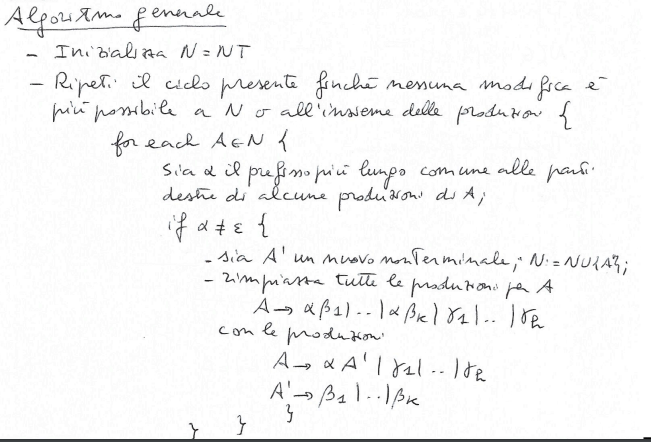 Algoritmo generale
- Inizializza N = NT
- Ripeti il ciclo presente finché nessuna modifica è
più possibile a N o all'insieme delle produzioni {
for each A ∈ N {
sia α il prefisso più lungo comune alle parti
destre di alcune produzioni di A;
if α ≠ ε {
- sia A' un nuovo nonterminale; N := N ∪ {A'};
- rimpiazza tutte le produzioni per A
A → αβ1 | .. | αβk | γ1 | .. | γh
con le produzioni
A → αA' | γ1 | .. | γh
A' → β1 | .. | βk
}
} }